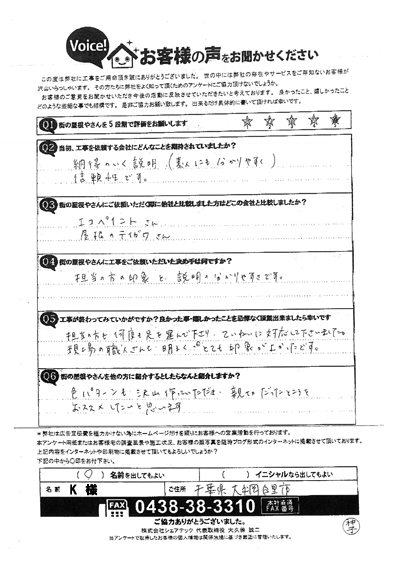 Voice!
お客様の声をお聞かせください
この度は弊社に工事をご用命頂き誠にありがとうございました。世の中には弊社の存在やサービスをご存知ないお客様が
沢山いらっしゃいます。その方たちに弊社をよく知って頂くためのアンケートにご協力頂けないでしょうか。
お客様のご意見をお聞かせいただき今後の活動に反映させていただきたいと考えております。良かったこと、嬉しかったこと
どのような些細な事でも結構です。是非ご協力お願い致します。出来るだけ具体的に書いて頂ければ幸いです。
Q1 街の屋根やさんを5段階で評価をお願いします ☆ ☆ ☆ ☆ ☆
Q2 当初、工事を依頼する会社にどんなことを期待されていましたか?
納得のいく説明(素人にも分かりやすく)
信頼性です。
Q3 街の屋根やさんにご依頼いただく際に他社と比較しました方はどこの会社と比較しましたか?
エコペイントさん
屋根のデイガワさん
Q4 街の屋根やさんに工事をご依頼いただいた決め手は何ですか?
担当の方の印象と、説明の分かりやすさです。
Q5 工事が終わってみていかがですか?良かった事・嬉しかったことを忌憚なくご誤頂出来ましたら幸いです
担当の方も何度も足を運んで下さり、ていねいに対応して下さいました。
現場の職人さんも明るくとても印象が上かったです。
Q6 街の屋根やさんを他の方に紹介するとしたらなんと紹介しますか?
色パターンも沢山作っていただき、親切だったところを
おススメしたいと思います
*弊社は広告宣伝費を極力かけない為にホームページだけを頼りにお客様への営業活動を行っております。
本アンケート用紙またはお客様宅の調査風景や施工状況、お客様の顔写真を随時ブログ形式のインターネットに掲載させて頂いております。
上記内容をインターネットや印刷物に掲載させて頂いてもよろしいでしょうか?
下記の中から○印をお付け下さい。
(○)名前を出してもよい ( )イニシャルなら出してもよい
名前 K 様 ご住所 千葉県大網白里市
FAX 0438-38-3310 本社直通 FAX番号
ご協力ありがとうございました。
株式会社シェアテック 代表取締役 大久保 誠二
当アンケートで取得したお客様の個人情報は関係法規に基づき適正に管理いたします。